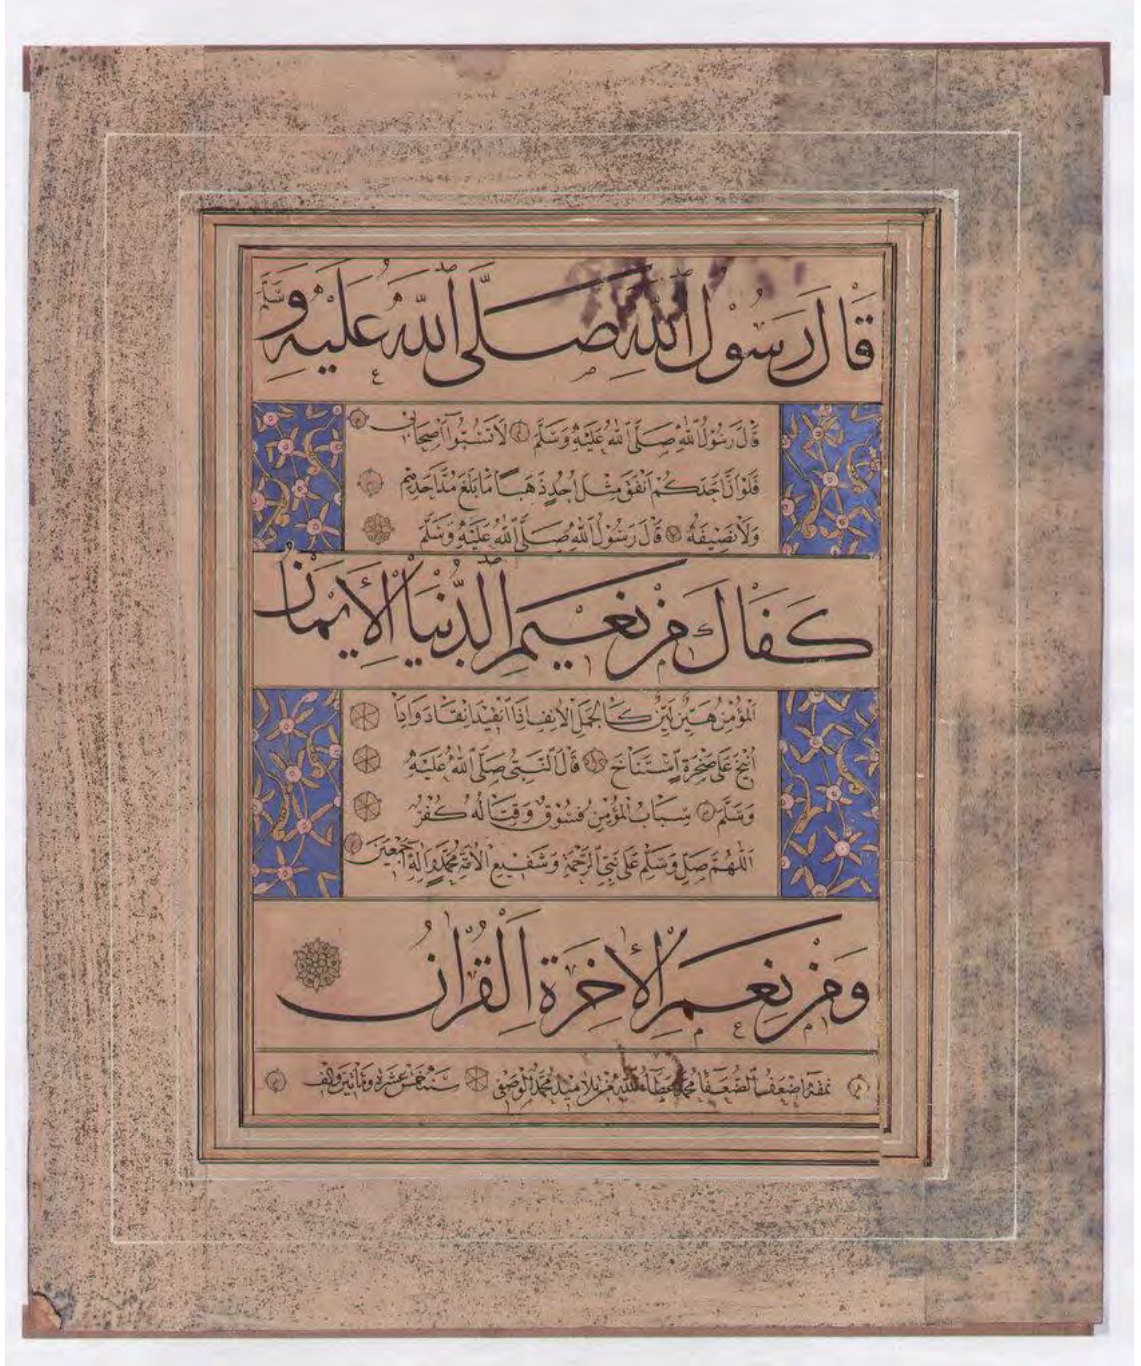 قَالَ رَسُولُ اللّٰهِ صَلَّى اللّٰهُ عَلَيْهِ وَسَلَّمَ
قَالَ رَسُولُ اللّٰهِ صَلَّى اللّٰهُ عَلَيْهِ وَسَلَّمَ لَا تَسُبُّوا أَصْحَابِي
فَلَوْ أَنَّ أَحَدَكُمْ أَنْفَقَ مِثْلَ أُحُدٍ ذَهَبًا مَا بَلَغَ مُدَّ أَحَدِهِمْ
وَلَا نَصِيفَهُ قَالَ رَسُولُ اللّٰهِ صَلَّى اللّٰهُ عَلَيْهِ وَسَلَّمَ
كَفَاكَ مِنْ نَعِيمِ الدُّنْيَا الْإِيمَانُ
اَلْمُؤْمِنُ هَيِّنٌ لَيِّنٌ كَالْجَمَلِ الْأَنِفِ إِذَا انْقِيدَ انْقَادَ وَإِذَا
أُنِيخَ عَلَى صَخْرَةٍ اسْتَنَاخَ قَالَ النَّبِيُّ صَلَّى اللّٰهُ عَلَيْهِ
وَسَلَّمَ سِبَابُ الْمُؤْمِنِ فُسُوقٌ وَقِتَالُهُ كُفْرٌ
اَللّٰهُمَّ صَلِّ وَسَلِّمْ عَلَى نَبِيِّ الرَّحْمَةِ وَشَفِيعِ الْأُمَّةِ مُحَمَّدٍ وَآلِهِ أَجْمَعِينَ
وَمِنْ نِعَمِ الْآخِرَةِ الْقُرْآنُ
نمقه اضعف الضعفا محمد من تلاميذ محمد الوصفى سنة خمس عشرة ومائتين والف